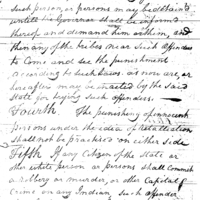 such person, or persons may be detained
until his Governor shall be informed
thereof and demand him or them, and
then any of the tribes near such offenders
to Come and see the punishment
according to such Laws as now are, or
hereafter may be enacted by the said
State for trying such offenders.
Fourth The punishing of innocent
persons under the idea of retaliation
shall not be practised on either side
Fifth If any Citizen of the State or
other person or persons shall Commit
a robbery or murder, or other Capital
Crime on any Indian, such offender